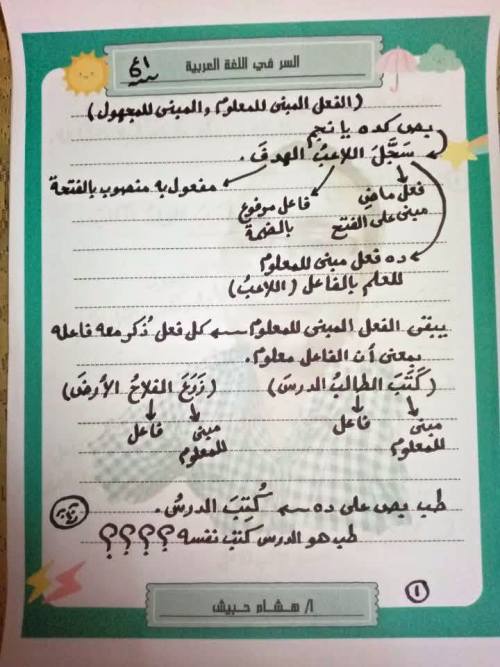 السر في اللغة العربية
(الفعل المبنى للمعلوم والمبنى للمجهول)
بص كده يا نجم
سَجَّلَ اللاعبُ الهدفَ.
فعل ماضِ مبنى على الفتح
فاعل مرفوع بالضمة
مفعول به منصوب بالفتحة
ده فعل مبنى للمعلوم
للعلم بالفاعل (اللاعبُ)
يبقى الفعل المبنى للمعلوم ← كل فعل ذُكر معه فاعله
بمعنى أن الفاعل معلوم.
(كَتَبَ الطالبُ الدرسَ) (زَرَعَ الفلاحُ الأرضَ)
مبنى للمعلوم فاعل مبنى للمعلوم فاعل
طب بص على ده ← كُتِبَ الدرسُ.
طب هو الدرس كتب نفسه ؟؟؟؟
١
ا/ هشام حبيش